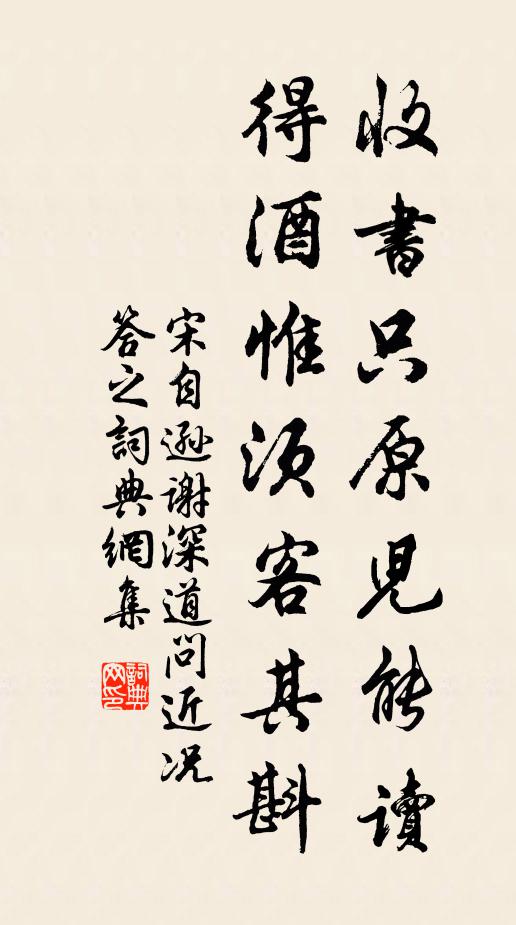 收書只原兒能讀
得酒惟須客其斟
宋自遜謝深道問近况
答之詞典網集
詞典
网印